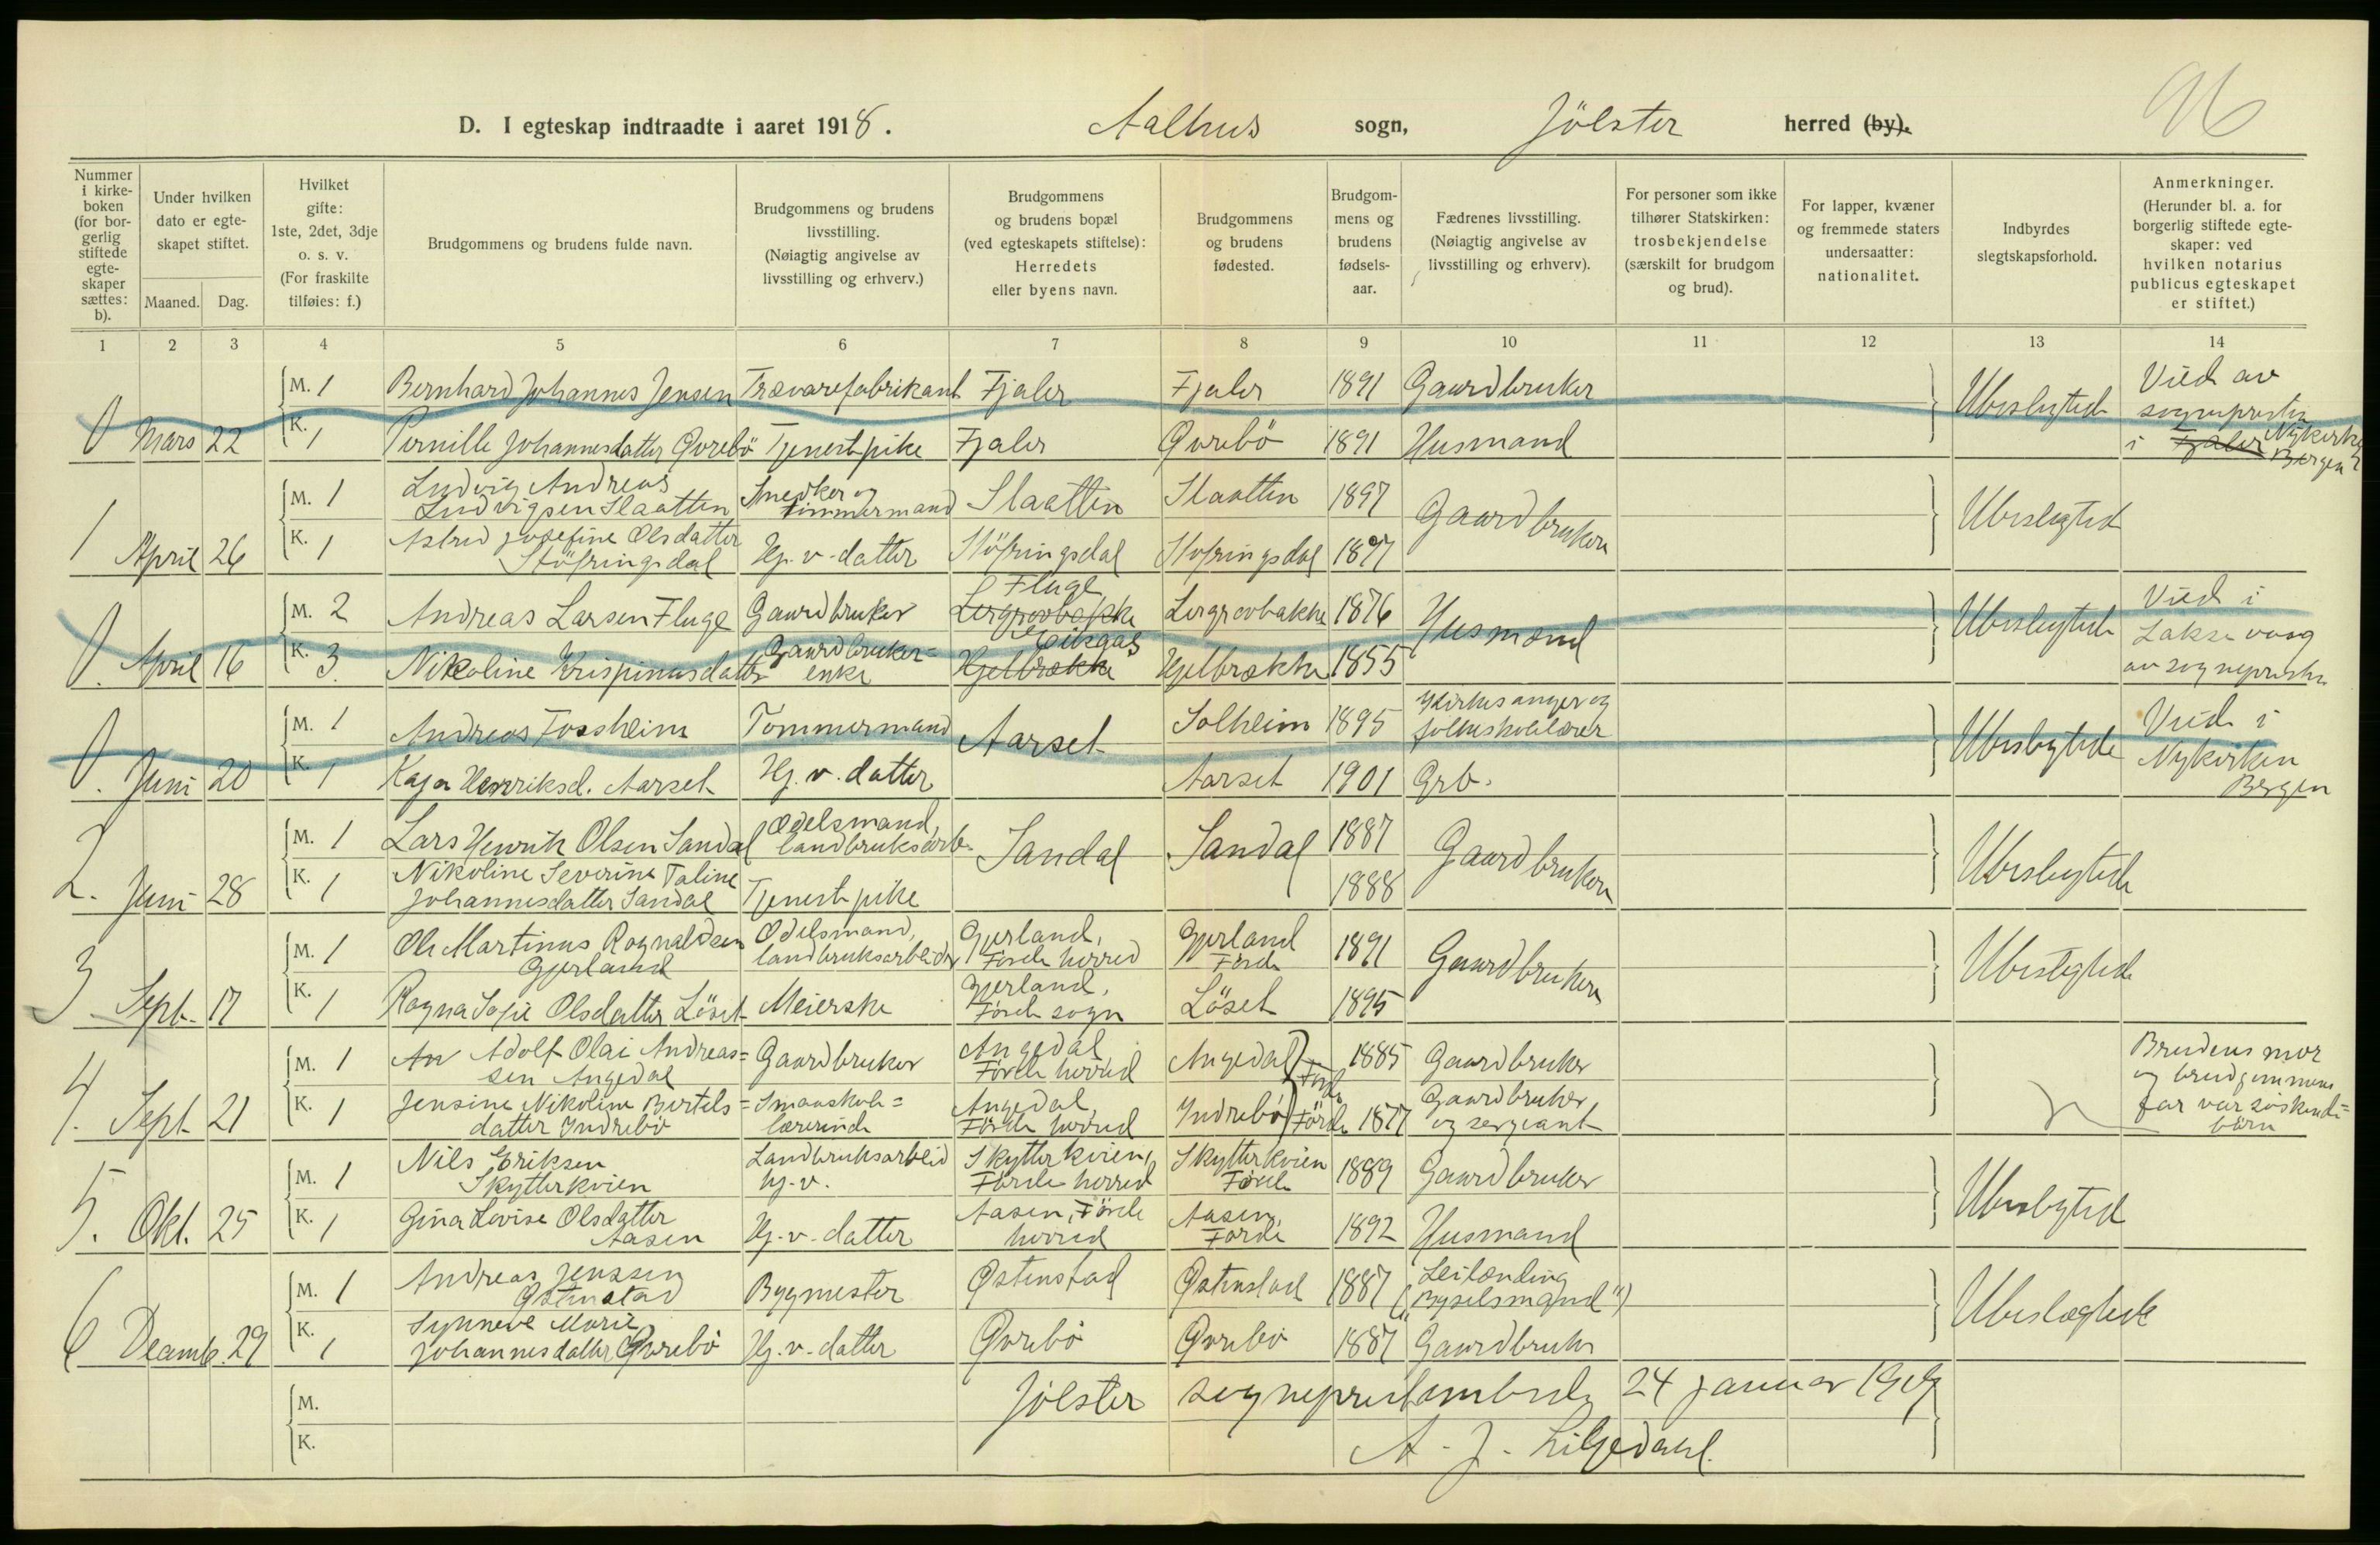 96
D. I egteskap indtraadte i aaret 1918. Aalhus sogn, Jölster herred (by).
Nummer i kirkeboken (for borgerlig stiftede egteskaper sættes: b).
Under hvilken dato er egteskapet stiftet.
Maaned. Dag.
Hvilket gifte: 1ste, 2det, 3dje o. s. v. (For fraskilte tilføies: f.)
Brudgommens og brudens fulde navn.
Brudgommens og brudens livsstilling. (Nøiagtig angivelse av livsstilling og erhverv.)
Brudgommens og brudens bopæl (ved egteskapets stiftelse): Herredets eller byens navn.
Brudgommens og brudens fødested.
Brudgommens og brudens fødselsaar.
Fædrenes livsstilling. (Nøiagtig angivelse av livsstilling og erhverv).
For personer som ikke tilhører Statskirken: trosbekjendelse (særskilt for brudgom og brud).
For lapper, kvæner og fremmede staters undersaatter: nationalitet.
Indbyrdes slegtskapsforhold.
Anmerkninger. (Herunder bl. a. for borgerlig stiftede egteskaper: ved hvilken notarius publicus egteskapet er stiftet.)
1 2 3 4 5 6 7 8 9 10 11 12 13 14
M. 1 Bernhard Johannes Jensen Trævarefabrikant Fjaler Fjaler 1891 Gaardbruker Ubeslegtede Vied av sogneprsten
0 Mars 22 K. 1 Pernille Johannesdatter Qvrebö Tjenestpike Fjaler Qvrebö 1891 Husmand i Fjaler Nykirken Bergen
M. 1 Ludvig Andreas Ludvigsen Slaatten Snedker og tömmermand Slaatten Slaatten 1897 Gaardbrukere Ubeslegtede
1 April 26 K. 1 Astrid Josefine Olsdatter Stöfringsdal Hj. v. datter Stöfringsdal Stöfringsdal 1897
M. 2 Andreas Larsen Fluge Gaardbruker Lergrovbakke Fluge Lergrovbakke 1876 Husmænd Ubeslegtede Vied i Laksevaag av sogneprsten
0. April 16 K. 3. Nikoline Krispinusdatter Gaardbruker=enke Hjelbrekke Hjelbrekke 1855
M. 1 Andreas Fossheim Tömmermand Aarset Solheim 1895 Kirkesanger og folkeskolelærer Ubeslegtede Vied i Nykirken Bergen
0. Juni 20 K. 1 Kaja Henriksd. Aarset Hj. v. datter Aarset 1901 Grb.
M. 1 Lars Henrik Olsen Sandal Odelsmand, landbruksarb. Sandal Sandal 1887 Gaardbrukere Ubeslegtede
2. Juni 28 K. 1 Nikoline Severine Taline Johannesdatter Sandal Tjenestpike 1888
M. 1 Ole Martinus Ragnaldsen Gjerland Odelsmand, landbruksarbeider Gjerland, Förde herred Gjerland Förde 1891 Gaardbrukere Ubeslegtede
3 Sept. 17 K. 1 Ragna Sofie Olsdatter Löset Meierske Gjerland, Förde sogn Löset 1895
M. 1 An Adolf Olai Andreas=sen Angedal Gaardbruker Angedal, Förde herred Angedal Förde 1885 Gaardbruker Brudens mor og brudgommens far var söskende=börn
4. Sept 21 K. 1 Jensine Nikoline Bertels=datter Indrebö Smaaskole=lærerinde Angedal, Förde herred Indrebö Förde 1877 Gaardbruker og sergeant
M. 1 Nils Eriksen Skytterkvien Landbruksarbeid hj. v. Skytterkvien, Förde herred Skytterkvien Förde 1889 Gaardbruker Ubeslegtede
5. Okt. 25 K. 1 Gina Lovise Olsdatter Aasen Hj. v. datter Aasen, Förde herred Aasen, Förde 1892 Husmand
M. 1 Andreas Jenssen Østenstad Bygmester Østenstad Østenstad 1887 Leilænding ("Bygselsmand") Ubeslægtede
6 Decemb. 29 K. 1 Synneve Marie Johannesdatter Qvrebö Hj. v. datter Qvrebö Qvrebö 1887 Gaardbruker
M. Jölster sogneprestembede 24 januar 1919
K. A. J. Liljedahl.